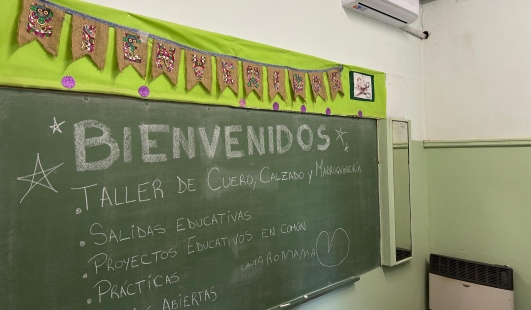 BIENVENIDOS
• TALLER DE CUERO, CALZADO Y MARROQUINERÍA
• SALIDAS EDUCATIVAS
• PROYECTOS EDUCATIVOS EN COMÚN
• PRACTICAS
ABIERTAS